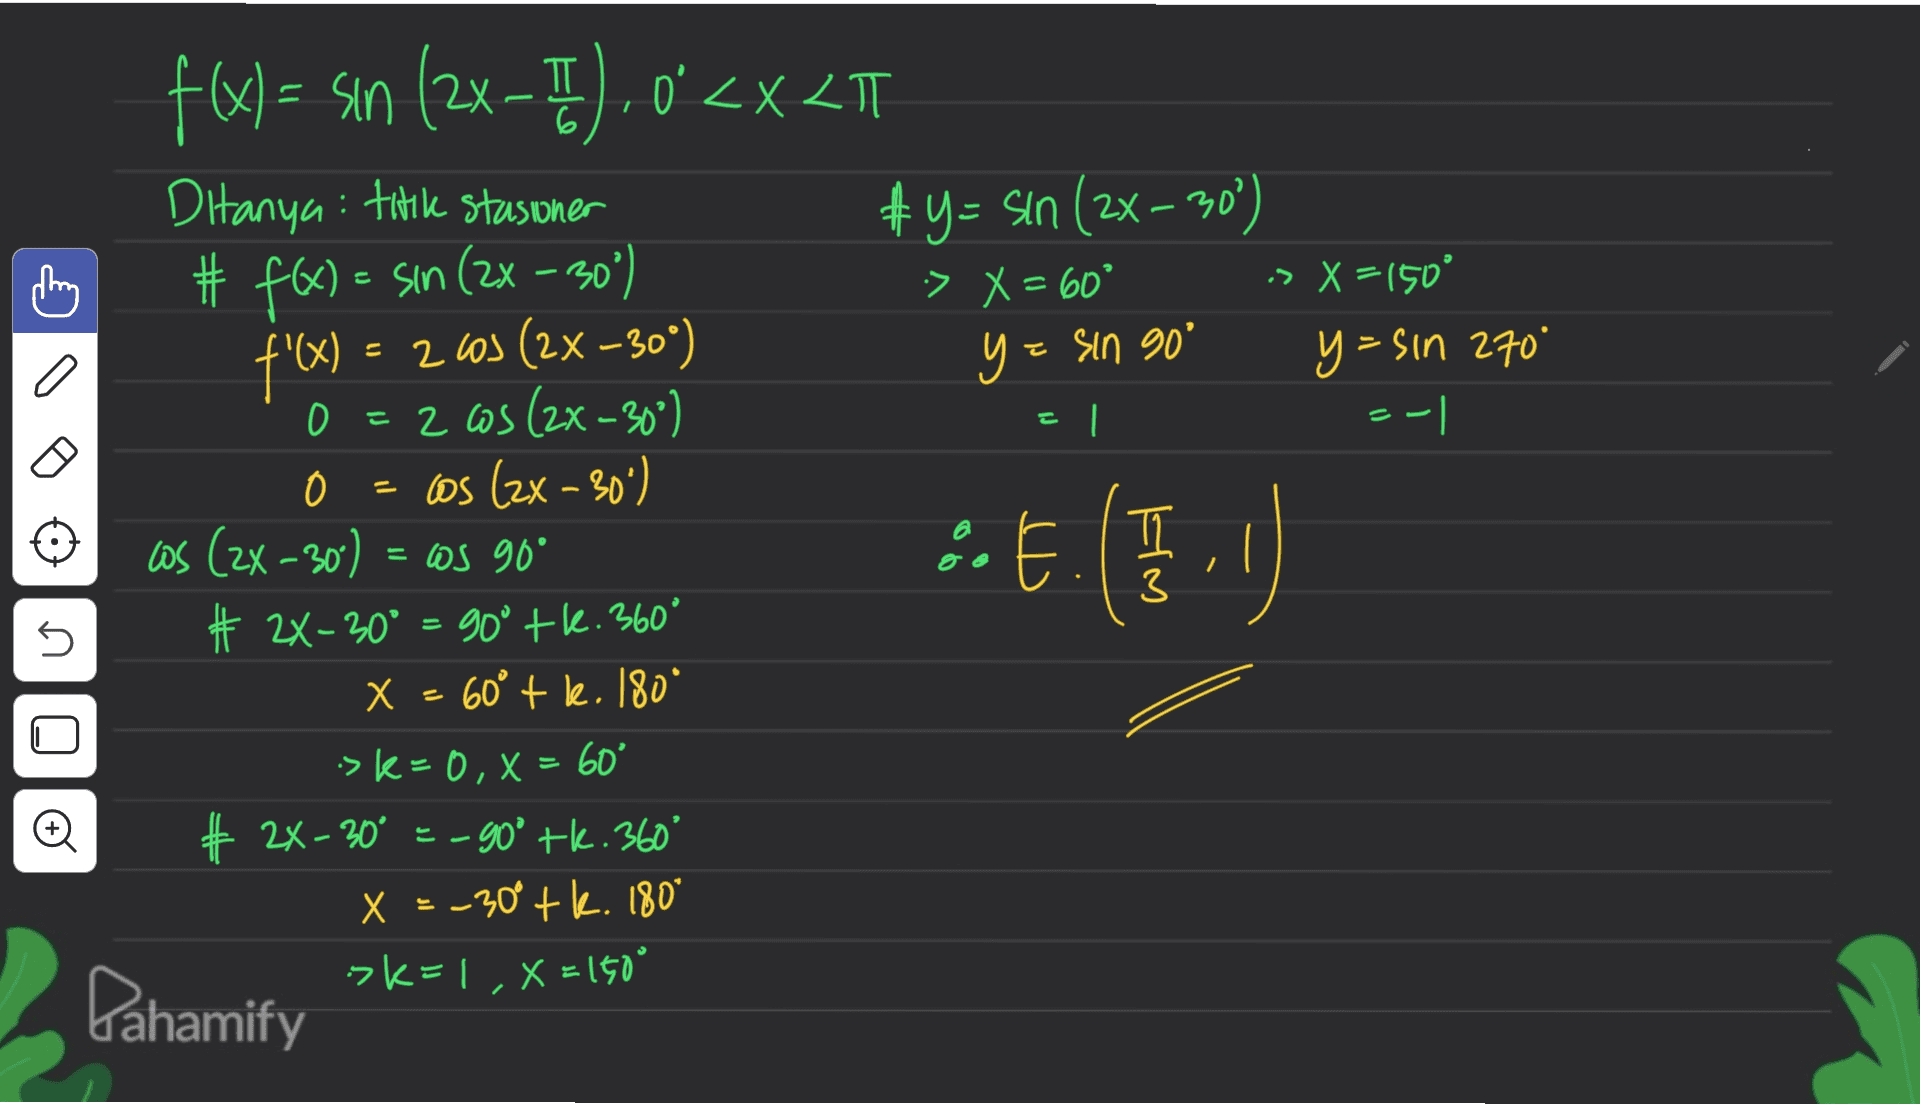 f(x) = sin (2x - π/6), 0° < x < π
Ditanya : titik stasioner
# f(x) = sin (2x - 30°)
f'(x) = 2 cos (2x - 30°)
0 = 2 cos (2x - 30°)
0 = cos (2x - 30°)
cos (2x - 30°) = cos 90°
# 2x - 30° = 90° + k. 360°
x = 60° + k. 180°
-> k = 0, x = 60°
# 2x - 30° = -90° + k. 360°
x = -30° + k. 180°
-> k = 1, x = 150°
# y = sin (2x - 30°)
-> x = 60° -> x = 150°
y = sin 90° y = sin 270°
= 1 = -1
∴ E. (π/3, 1)
Pahamify